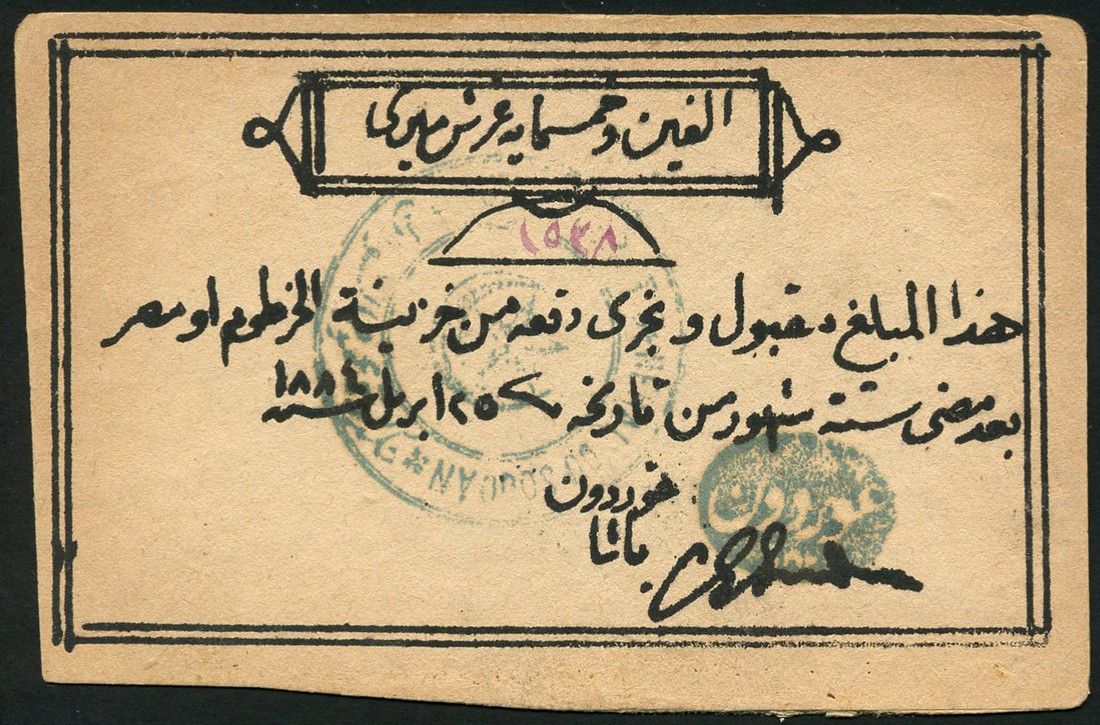 الفين وخمسمايه غرش ميرى
١٥٣٨
هذا المبلغ مقبول ويجرى دفعه من خزينة الخرطوم او مصر
بعد مضى ستة شهور من تاريخه ٢٥ ابريل سنه ١٨٨٤
غوردون
باشا
غوردون
SOUDAN